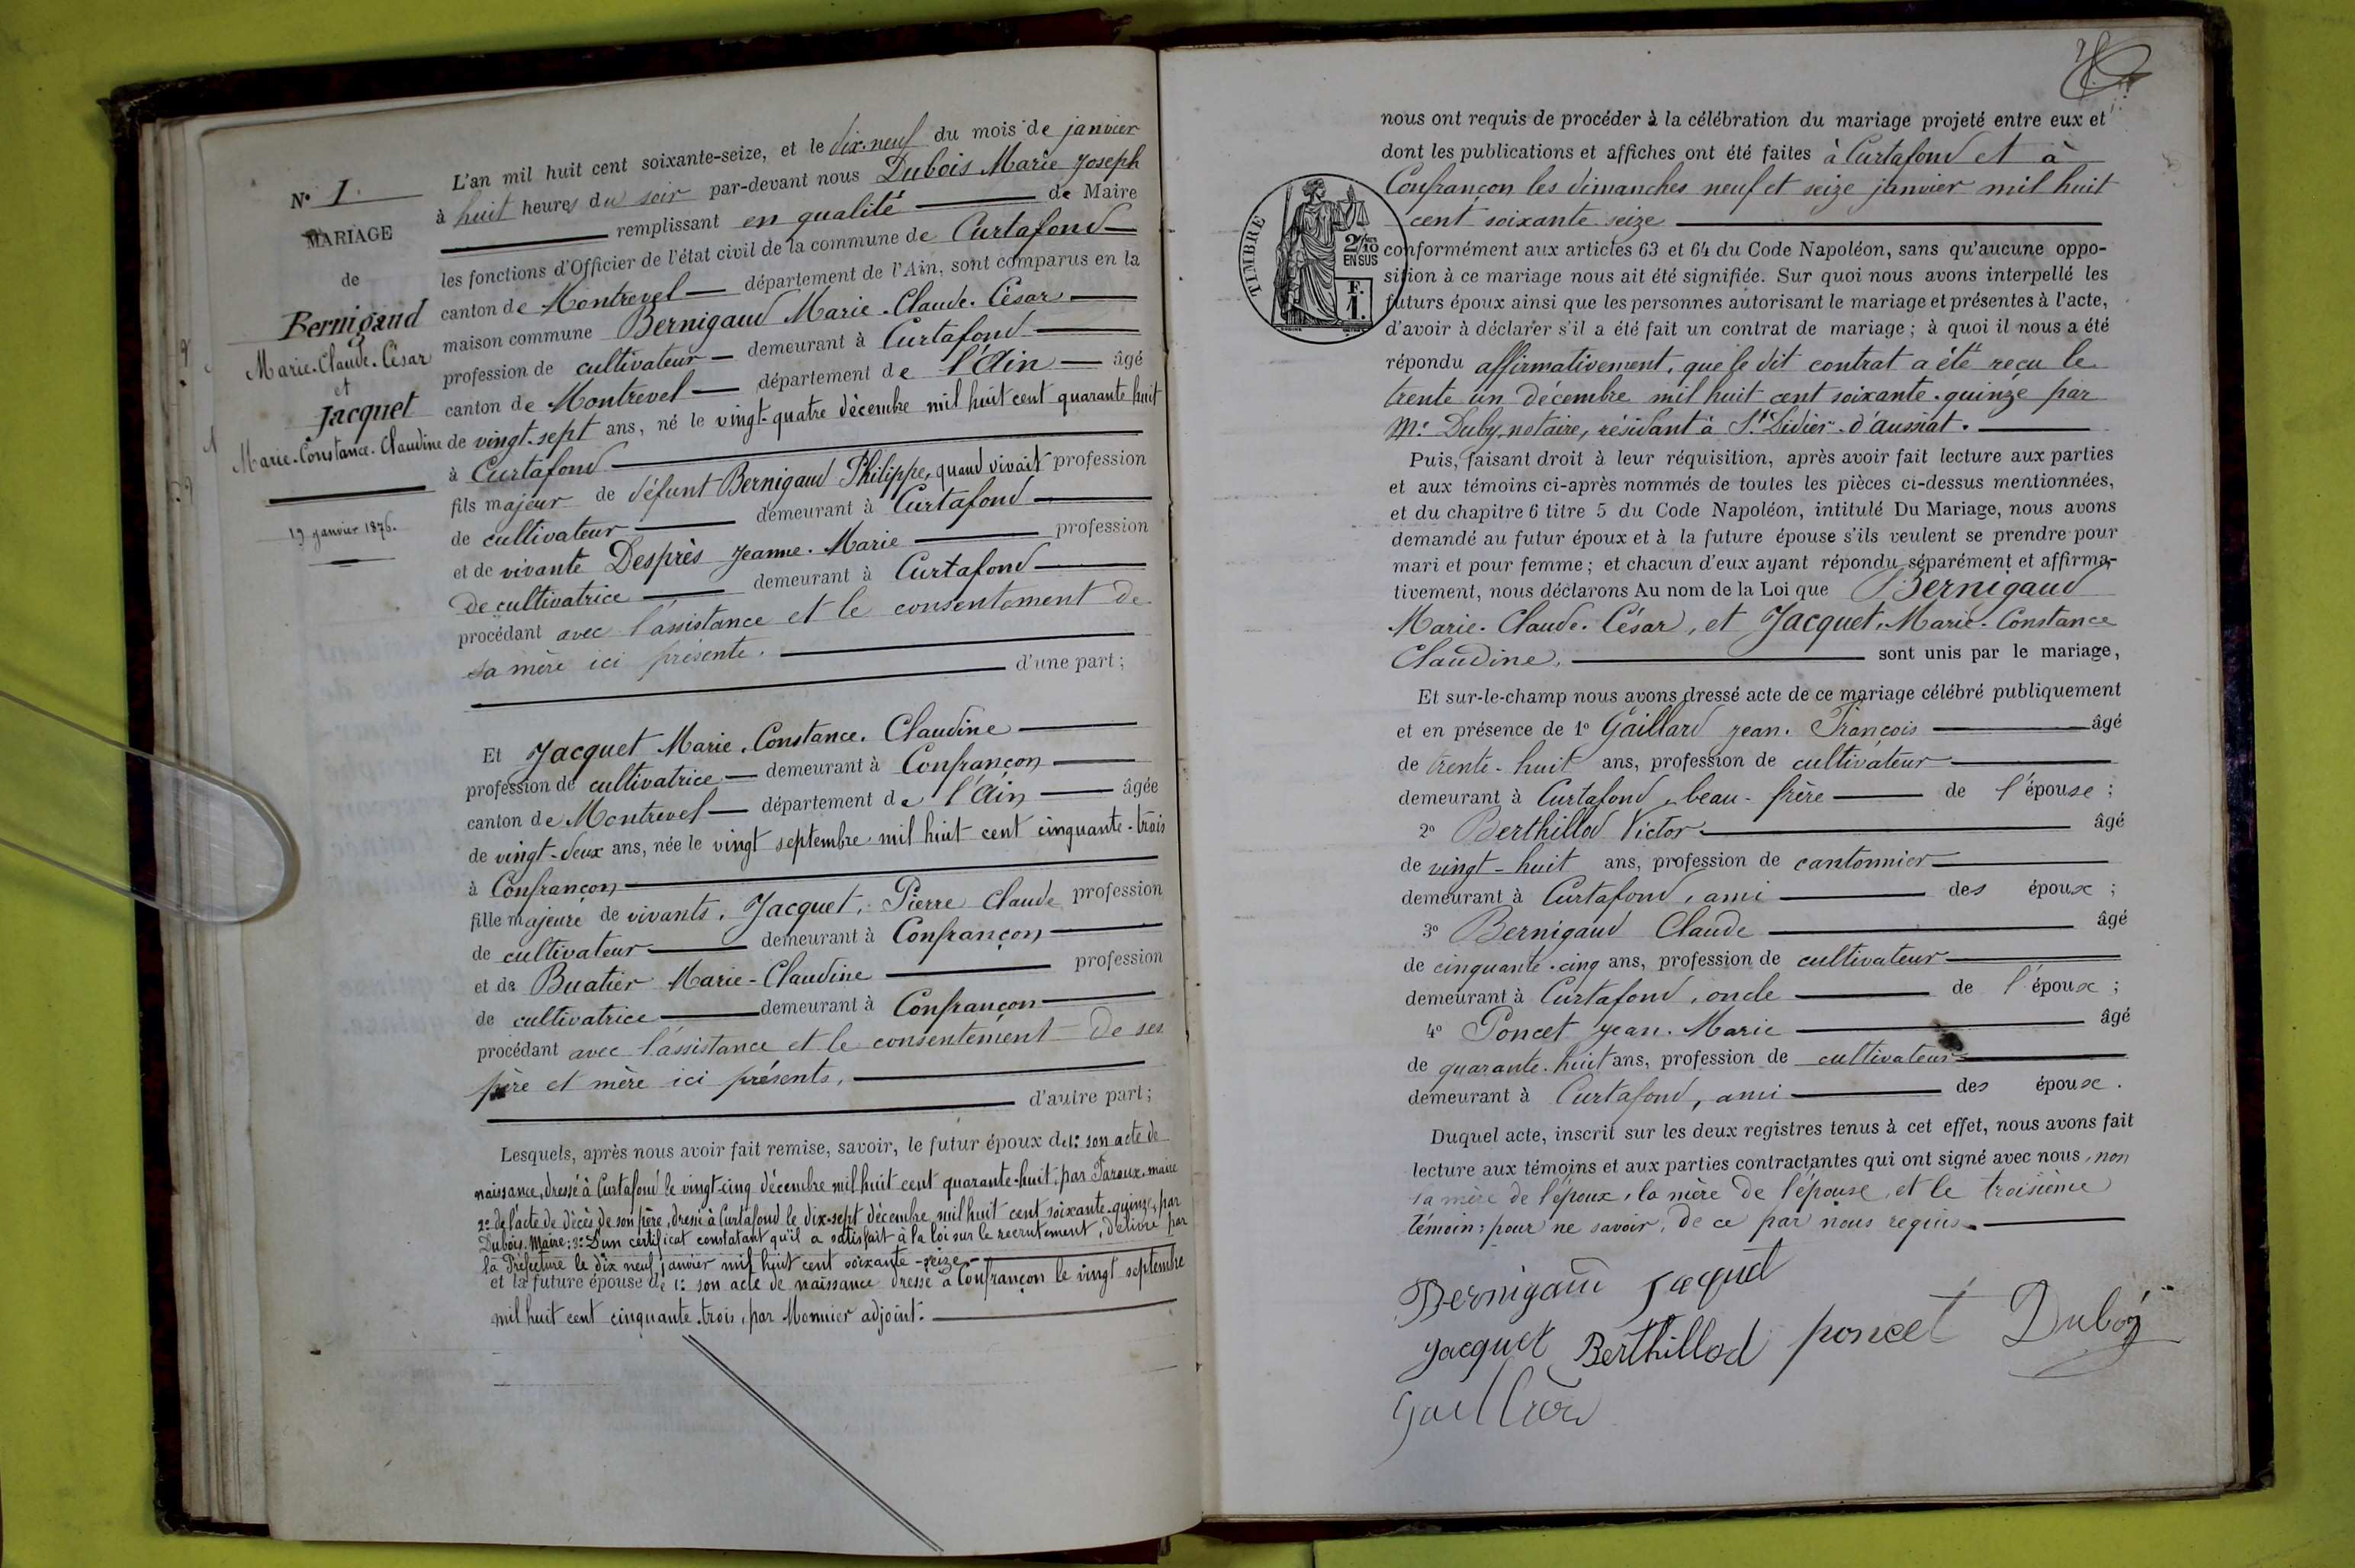 N° 1.
MARIAGE
de
Bernigaud
Marie-Claude-César
et
Jacquet
Marie-Constance-Claudine
19 janvier 1876.
L'an mil huit cent soixante-seize, et le dix-neuf du mois de janvier
à huit heures du soir par-devant nous Dubois Marie Joseph
remplissant en qualité de Maire
les fonctions d'Officier de l'état civil de la commune de Curtafond
canton de Montrevel département de l'Ain, sont comparus en la
maison commune Bernigaud Marie-Claude-César
profession de cultivateur demeurant à Curtafond
canton de Montrevel département de l'Ain âgé
de vingt-sept ans, né le vingt-quatre décembre mil huit cent quarante huit
à Curtafond
fils majeur de défunt Bernigaud Philippe, quand vivait profession
de cultivateur demeurant à Curtafond
et de vivante Desprès Jeanne-Marie profession
de cultivatrice demeurant à Curtafond
procédant avec l'assistance et le consentement de
sa mère ici présente.
d'une part;
Et Jacquet Marie-Constance-Claudine
profession de cultivatrice demeurant à Confrançon
canton de Montrevel département de l'Ain âgée
de vingt-deux ans, née le vingt septembre mil huit cent cinquante-trois
à Confrançon
fille majeure de vivants, Jacquet, Pierre Claude profession
de cultivateur demeurant à Confrançon
et de Buatier Marie-Claudine profession
de cultivatrice demeurant à Confrançon
procédant avec l'assistance et le consentement de ses
père et mère ici présents,
d'autre part;
Lesquels, après nous avoir fait remise, savoir, le futur époux de 1: son acte de
naissance, dressé à Curtafond le vingt-cinq décembre mil huit cent quarante-huit, par Paroux, maire
2: de l'acte de décès de son père, dressé à Curtafond le dix-sept décembre mil huit cent soixante-quinze, par
Dubois, Maire; 3: D'un certificat constatant qu'il a satisfait à la loi sur le recrutement, délivré par
la Préfecture le dix neuf janvier mil huit cent soixante-seize
et la future épouse de 1: son acte de naissance dressé à Confrançon le vingt septembre
mil huit cent cinquante-trois, par Monnier adjoint.
TIMBRE
2/10
EN SUS
F.
1.
nous ont requis de procéder à la célébration du mariage projeté entre eux et
dont les publications et affiches ont été faites à Curtafond et à
Confrançon les dimanches neuf et seize janvier mil huit
cent soixante seize
conformément aux articles 63 et 64 du Code Napoléon, sans qu'aucune oppo-
sition à ce mariage nous ait été signifiée. Sur quoi nous avons interpellé les
futurs époux ainsi que les personnes autorisant le mariage et présentes à l'acte,
d'avoir à déclarer s'il a été fait un contrat de mariage; à quoi il nous a été
répondu affirmativement, que le dit contrat a été reçu le
trente un décembre mil huit cent soixante-quinze par
Me Duby, notaire, résidant à St Didier-d'Aussiat.
Puis, faisant droit à leur réquisition, après avoir fait lecture aux parties
et aux témoins ci-après nommés de toutes les pièces ci-dessus mentionnées,
et du chapitre 6 titre 5 du Code Napoléon, intitulé Du Mariage, nous avons
demandé au futur époux et à la future épouse s'ils veulent se prendre pour
mari et pour femme; et chacun d'eux ayant répondu séparément et affirma-
tivement, nous déclarons Au nom de la Loi que Bernigaud
Marie-Claude-César, et Jacquet, Marie-Constance
Claudine, sont unis par le mariage,
Et sur-le-champ nous avons dressé acte de ce mariage célébré publiquement
et en présence de 1° Gaillard Jean-François âgé
de trente-huit ans, profession de cultivateur
demeurant à Curtafond, beau-frère de l'épouse;
2° Berthillod Victor âgé
de vingt-huit ans, profession de cantonnier
demeurant à Curtafond, ami des époux;
3° Bernigaud Claude âgé
de cinquante-cinq ans, profession de cultivateur
demeurant à Curtafond, oncle de l'époux;
4° Poncet Jean-Marie âgé
de quarante-huit ans, profession de cultivateur
demeurant à Curtafond, ami des époux.
Duquel acte, inscrit sur les deux registres tenus à cet effet, nous avons fait
lecture aux témoins et aux parties contractantes qui ont signé avec nous, non
la mère de l'époux, la mère de l'épouse, et le troisième
témoin; pour ne savoir, de ce par nous requis.
Bernigaud Jaquet
Jacquet Berthillod poncet Duboy
Gaillard